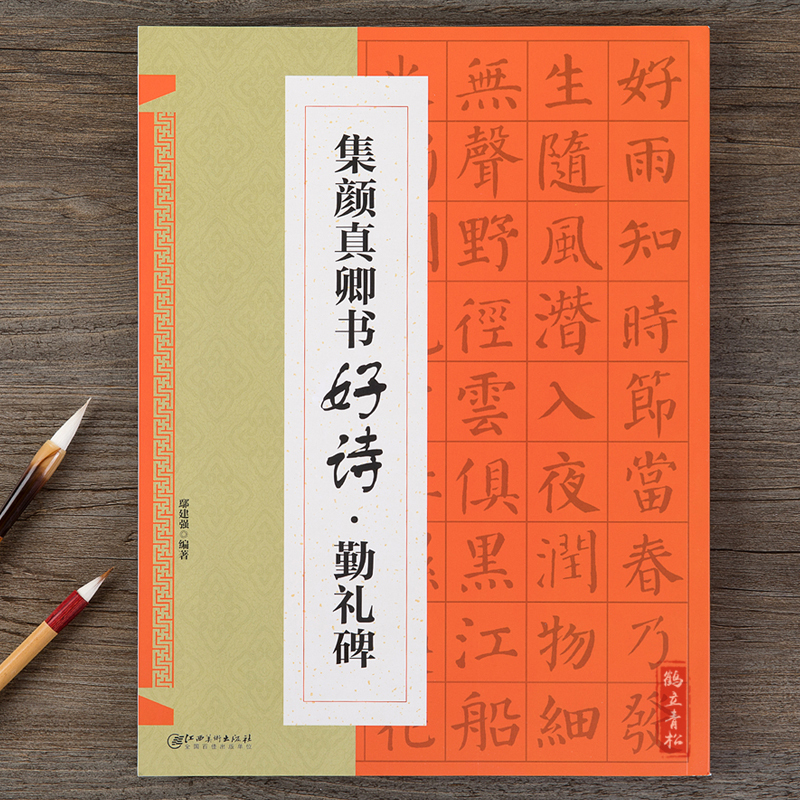 集颜真卿书好诗·勤礼碑
鄢建强◎编著
江西美术出版社
全国百佳出版单位
好雨知時節當春乃發
生隨風潛入夜潤物細
無聲野徑雲俱黑江船
鹤立青松